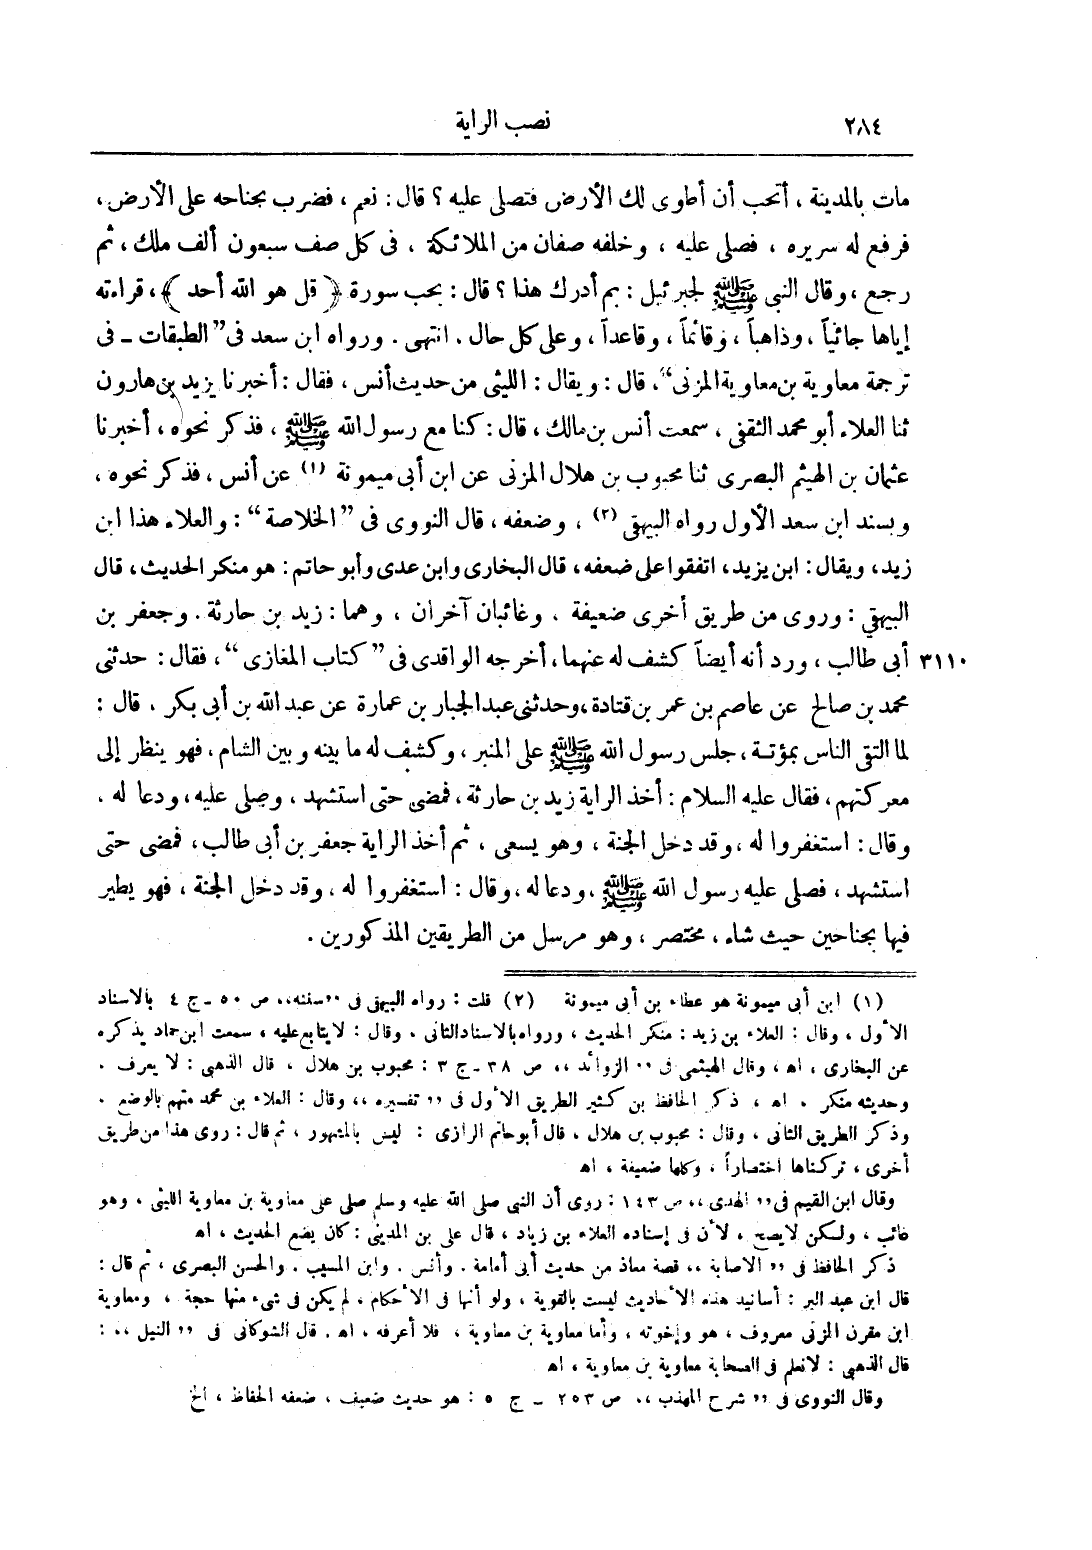 ٢٨٤ نصب الراية
مات بالمدينة ، أتحب أن أطوى لك الأرض فتصلى عليه ؟ قال : نعم ، فضرب بجناحه على الأرض ،
فرفع له سريره ، فصلى عليه ، وخلفه صفان من الملائكة ، فى كل صف سبعون ألف ملك ، ثم
رجع ، وقال النبى ﷺ لجبرئيل : بم أدرك هذا ؟ قال : بحب سورة ﴿ قل هو الله أحد ﴾ ، قراءته
إياها جائياً ، وذاهباً ، وقائماً ، وقاعداً ، وعلى كل حال . انتهى . ورواه ابن سعد فى ” الطبقات ــ فى
ترجمة معاوية بن معاوية المزنى “ ، قال : ويقال : الليثى من حديث أنس ، فقال : أخبرنا يزيد بن هارون
ثنا العلاء أبو محمد الثقفى ، سمعت أنس بن مالك ، قال : كنا مع رسول الله ﷺ ، فذكر نحوه ، أخبرنا
عثمان بن الهيثم البصرى ثنا محبوب بن هلال المزنى عن ابن أبى ميمونة (١) عن أنس ، فذكر نحوه ،
وبسند ابن سعد الأول رواه البيهقى (٢) ، وضعفه ، قال النووى فى ” الخلاصة “ : والعلاء هذا ابن
زيد ، ويقال : ابن يزيد ، اتفقوا على ضعفه ، قال البخارى وابن عدى وأبو حاتم : هو منكر الحديث ، قال
البيهقى : وروى من طريق أخرى ضعيفة . وغائبان آخران ، وهما : زيد بن حارثة . وجعفر بن
٣١١٠ أبى طالب ، ورد أنه أيضاً كشف له عنهما ، أخرجه الواقدى فى ” كتاب المغازى “ ، فقال : حدثنى
محمد بن صالح عن عاصم بن عمر بن قتادة ، وحدثنى عبد الجبار بن عمارة عن عبد الله بن أبى بكر ، قال :
لما التقى الناس بمؤتة ، جلس رسول الله ﷺ على المنبر ، وكشف له ما بينه وبين الشام ، فهو ينظر إلى
معركتهم ، فقال عليه السلام : أخذ الراية زيد بن حارثة ، فمضى حتى استشهد ، وصلى عليه ، ودعا له ،
وقال : استغفروا له ، وقد دخل الجنة ، وهو يسعى ، ثم أخذ الراية جعفر بن أبى طالب ، فمضى حتى
استشهد ، فصلى عليه رسول الله ﷺ ، ودعا له ، وقال : استغفروا له ، وقد دخل الجنة ، فهو يطير
فيها بجناحين حيث شاء ، مختصر ، وهو مرسل من الطريقين المذكورين .
(١) ابن أبى ميمونة هو عطاء بن أبى ميمونة (٢) قلت : رواه البيهقى فى ,, سننه ،، ص ٥٠ ـ ج ٤ بالاسناد
الأول ، وقال : العلاء بن زيد : منكر الحديث ، ورواه بالاسناد الثانى . وقال : لايتابع عليه ، سمعت ابن حماد يذكره
عن البخارى ، اھ ، وقال الهيثمى فى ,, الزوائد ،، ص ٣٨ ـ ج ٣ : محبوب بن هلال ، قال الذهبى : لا يعرف .
وحديثه منكر . اھ ، ذكر الحافظ بن كثير الطريق الأول فى ,, تفسيره ،، وقال : العلاء بن محمد متهم بالوضع .
وذكر الطريق الثانى ، وقال : محبوب بن هلال ، قال أبو حاتم الرازى : ليس بالمشهور ، ثم قال : روى هذا من طريق
أخرى ، تركناها اختصاراً ، وكلها ضعيفة ، اھ
وقال ابن القيم فى ,, الهدى ،، ص ١٤٣ : روى أن النبى صلى الله عليه وسلم صلى على معاوية بن معاوية الليثى ، وهو
غائب ، ولكن لايصح ، لأن فى إسناده العلاء بن زياد ، قال على بن المدينى : كان يضع الحديث ، اھ
ذكر الحافظ فى ,, الاصابة ،، قصة معاذ من حديث أبى أمامة . وأنس . وابن المسيب . والحسن البصرى ، ثم قال :
قال ابن عبد البر : أسانيد هذه الأحاديث ليست بالقوية ، ولو أنها فى الأحكام ، لم يكن فى شىء منها حجة ، ومعاوية
ابن مقرن المزنى معروف ، هو وإخوته ، وأما معاوية بن معاوية ، فلا أعرفه ، اھ . قال الشوكانى فى ,, النيل ،، :
قال الذهبى : لانعلم فى الصحابة معاوية بن معاوية ، اھ
وقال النووى فى ,, شرح المهذب ،، ص ٢٥٣ ـ ج ٥ : هو حديث ضعيف ، ضعفه الحفاظ ، الخ